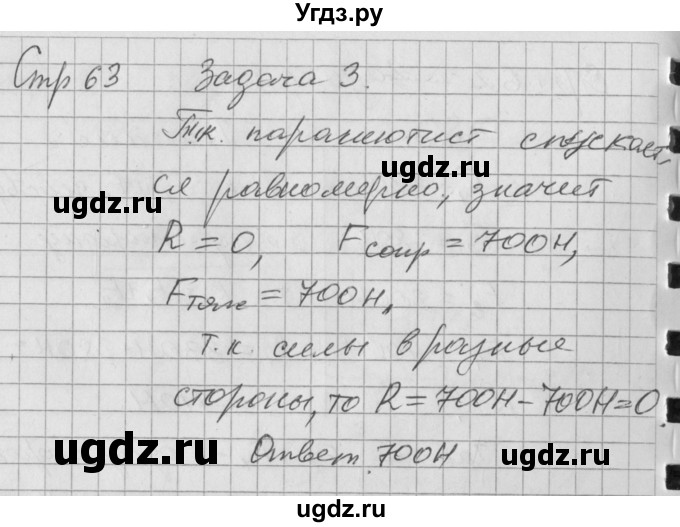 Угдз.ру
Стр 63 Задача 3.
Т.к. парашютист спускает,
ся равномерно, значит
ugdz.ru ugdz.ru
R = 0, Fсопр = 700Н,
Fтяж = 700Н,
т.к. силы в разные
стороны, то R = 700Н - 700Н = 0.
ugdz.ru ugdz.ru
Ответ 700Н
ugdz.ru